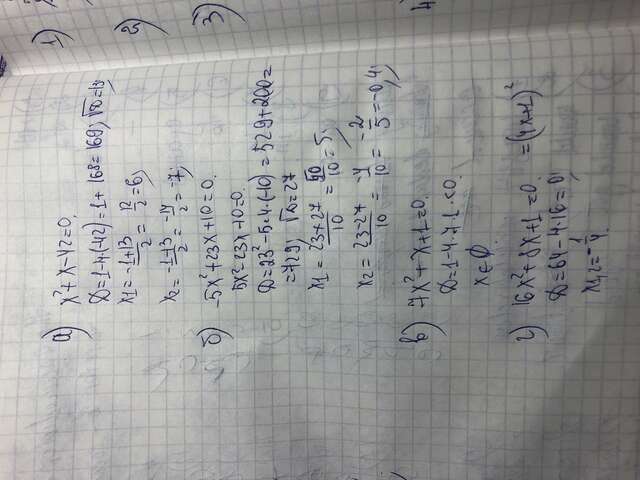 а) x²+x-42=0.
D=1-4·(-42)=1+168=169, √D=13
x1=-1+13/2=12/2=6,
x2=-1+13/2=-14/2=-7,
б) -5x²+23x+10=0.
5x²-23x-10=0.
D=23²-5·4·(-10)=529+200=
=729, √D=27
x1=23+27/10=50/10=5,
x2=23-27/10=-4/10=-2/5=-0,4,
в) 7x²+x+1=0.
D=1-4·7·1<0.
x∈∅.
г) 16x²+8x+1=0. =(4x+1)²
D=64-4·16=0
x1,2=-1/4.
1)
2)
3)
4